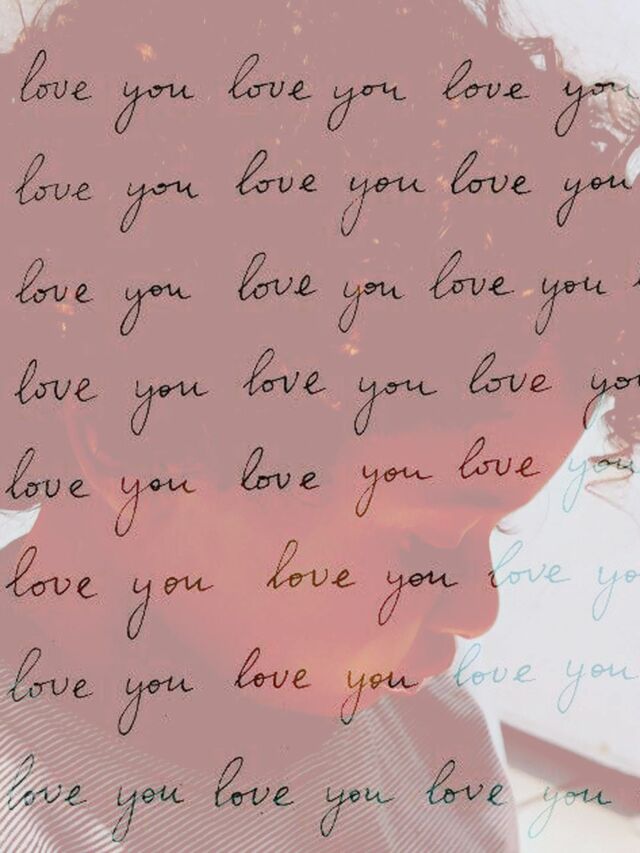 love you love you love you
love you love you love you
love you love you love you
love you love you love you
love you love you love you
love you love you love yo
love you love you love you
love you love you love you